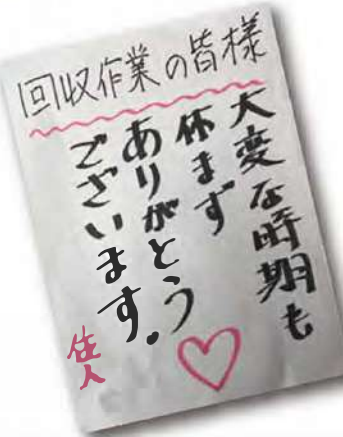 回収作業の皆様
大変な時期も
休まず
ありがとう
ございます。
住人